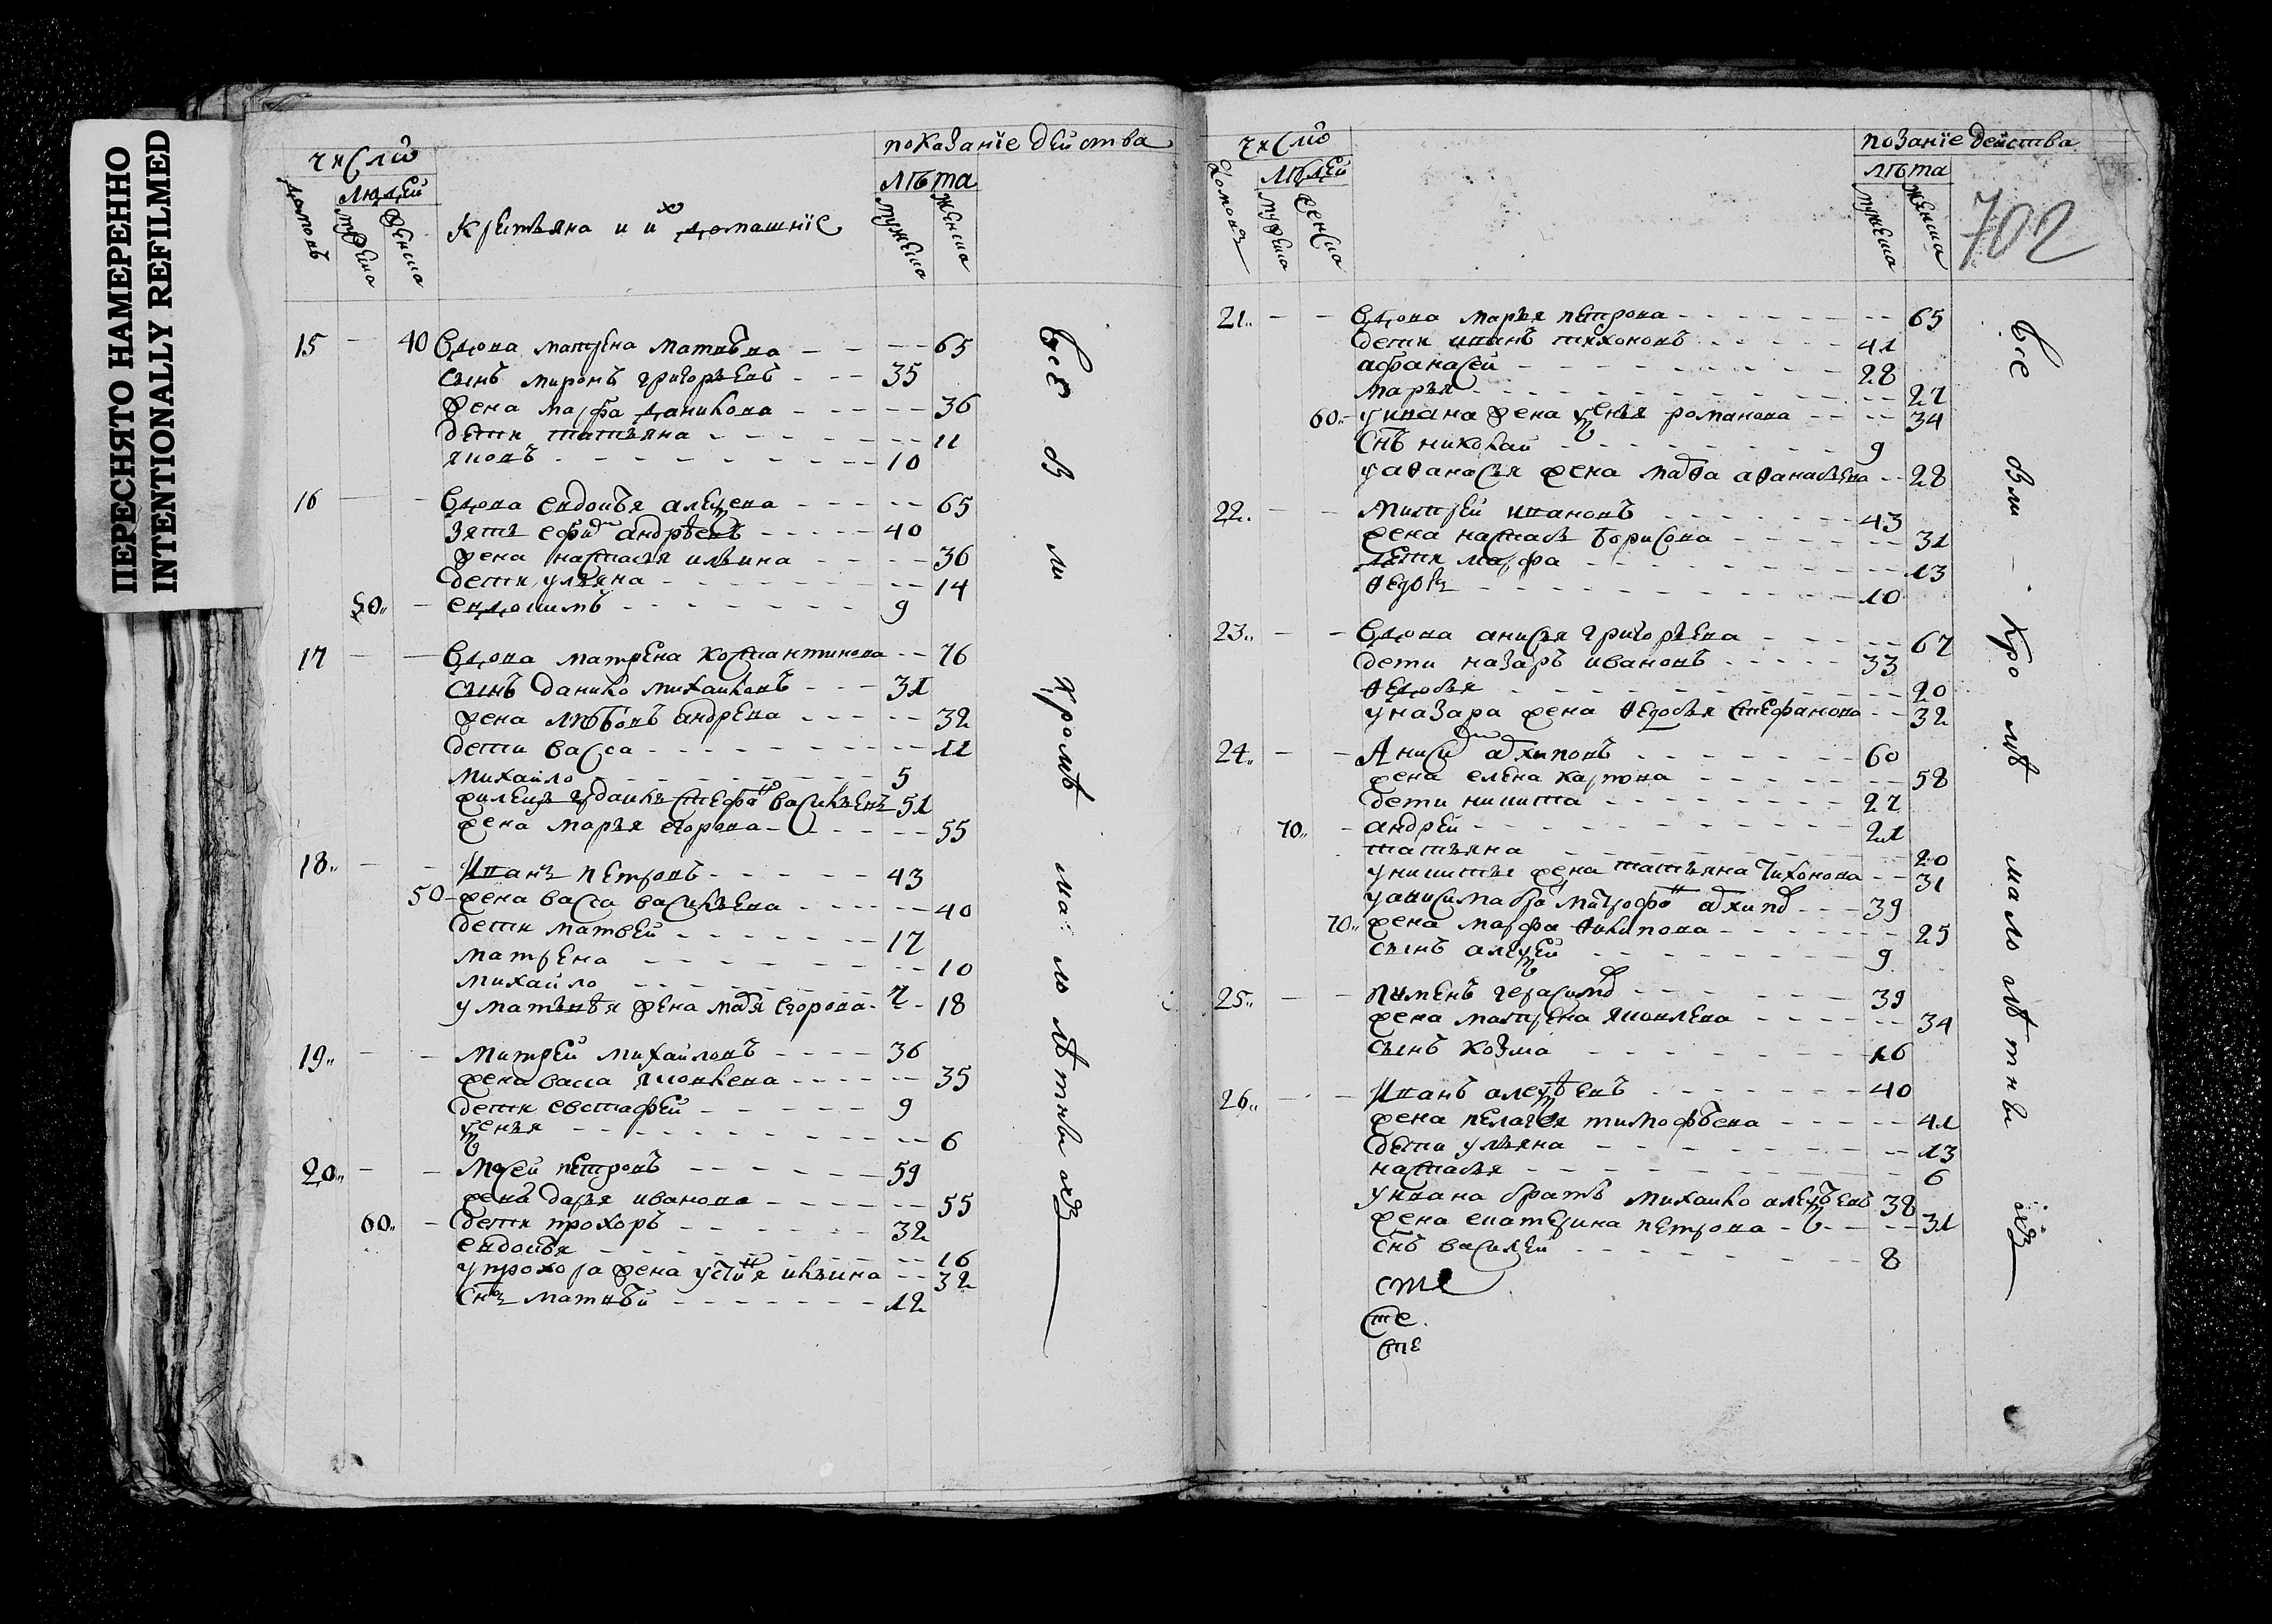 ПЕРЕСНЯТО НАМЕРЕННО
INTENTIONALLY REFILMED
число
показанїе действа
домовъ
людей
мужеска
женска
крестьяна и ихъ домашнїе
лѣта
мужеска
женска
15 - 40 вдова матрена матвѣева - - - 65
сынъ миронъ григорьевъ - - - 35
жена марфа данилова - - - 36
дети татьяна - - - 11
яковъ - - - 10
16 - - вдова евдокѣя алексеева - - - 65
зять ефимъ андрѣевъ - - - 40
жена настасья ильина - - - 36
дети ульяна - - - 14
50 - евдокимъ - - - 9
17 - - вдова матрена костантинова - - 76
сынъ данило михаиловъ - - - 31
жена любовъ андреева - - - 32
дети васса - - - 11
михайло - - - 5
стефанъ васильевъ 51
жена марья егорова - - - 55
18 - - Иванъ петровъ - - - 43
50 - жена васса васильева - - - 40
дети матвей - - - 17
матрена - - - 10
михайло - - - 7
у матвѣя жена марья егорова - - 18
19 - - митрей михайловъ - - - 36
жена васса яковлева - - - 35
дети евстафей - - - 9
ксенья - - - 6
20 - - Мосей петровъ - - - 59
жена дарья иванова - - - 55
60 - дети прохоръ - - - 32
евдокѣя - - - 16
у прохора жена устинья ильина - - 32
снъ матвѣй - - - 12
все вм кромѣ малолѣтны хъ
число
позанїе действа
702
домовъ
людей
мужеска
женска
лѣта
мужеска
женска
21 - - вдова марья петрова - - - 65
дети иванъ тихоновъ - - - 41
афанасей - - - 28
марья - - - 27
60 - у ивана жена ксенья романова - - - 34
снъ николай - - - 9
у аѳанасья жена марѳа аѳанасьева - - 28
22 - - Митрей ивановъ - - - 43
жена настасья борисова - - - 31
дети марфа - - - 13
ѳедоръ - - - 10
23 - - вдова анисья григорьева - - - 67
дети назаръ ивановъ - - - 33
ѳедосья - - - 20
у назара жена ѳедосья стефанова - - 32
24 - - Анисимъ архиповъ - - - 60
жена елена карпова - - - 58
дети никита - - - 27
70 - андрей - - - 21
татьяна - - - 20
у никиты жена татьяна тихонова - - 31
у анисима братъ митрофанъ архиповъ - - - 39
70 жена марфа ѳилипова - - - 25
сынъ алексей - - - 9
25 - - пименъ герасимовъ - - - 39
жена матрена яковлева - - - 34
сынъ козма - - - 16
26 - - Иванъ алексѣевъ - - - 40
жена пелагея тимофѣева - - - 41
дети ульяна - - - 13
настасья - - - 6
у ивана братъ михайло алексѣевъ 38
жена екатерина петрова - - - 31
снъ василей - - - 8
сте
сте
сте
все вм - кромѣ малолѣтны хъ